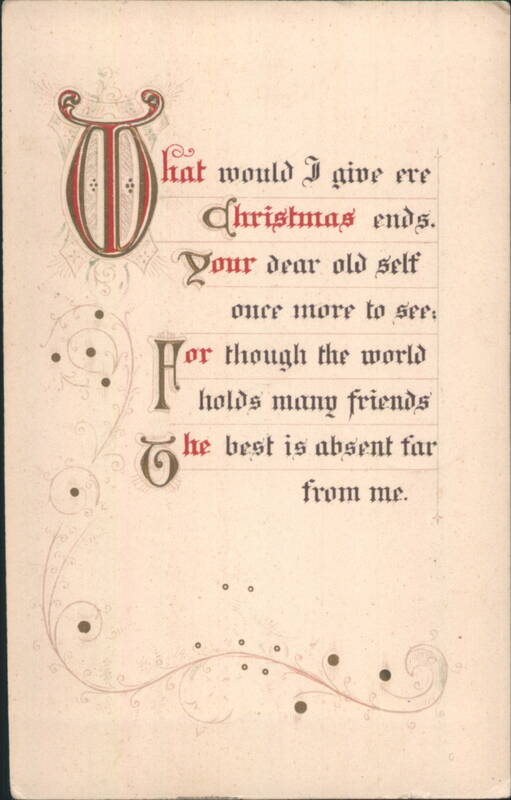 What would I give ere
Christmas ends.
Your dear old self
once more to see:
For though the world
holds many friends
The best is absent far
from me.